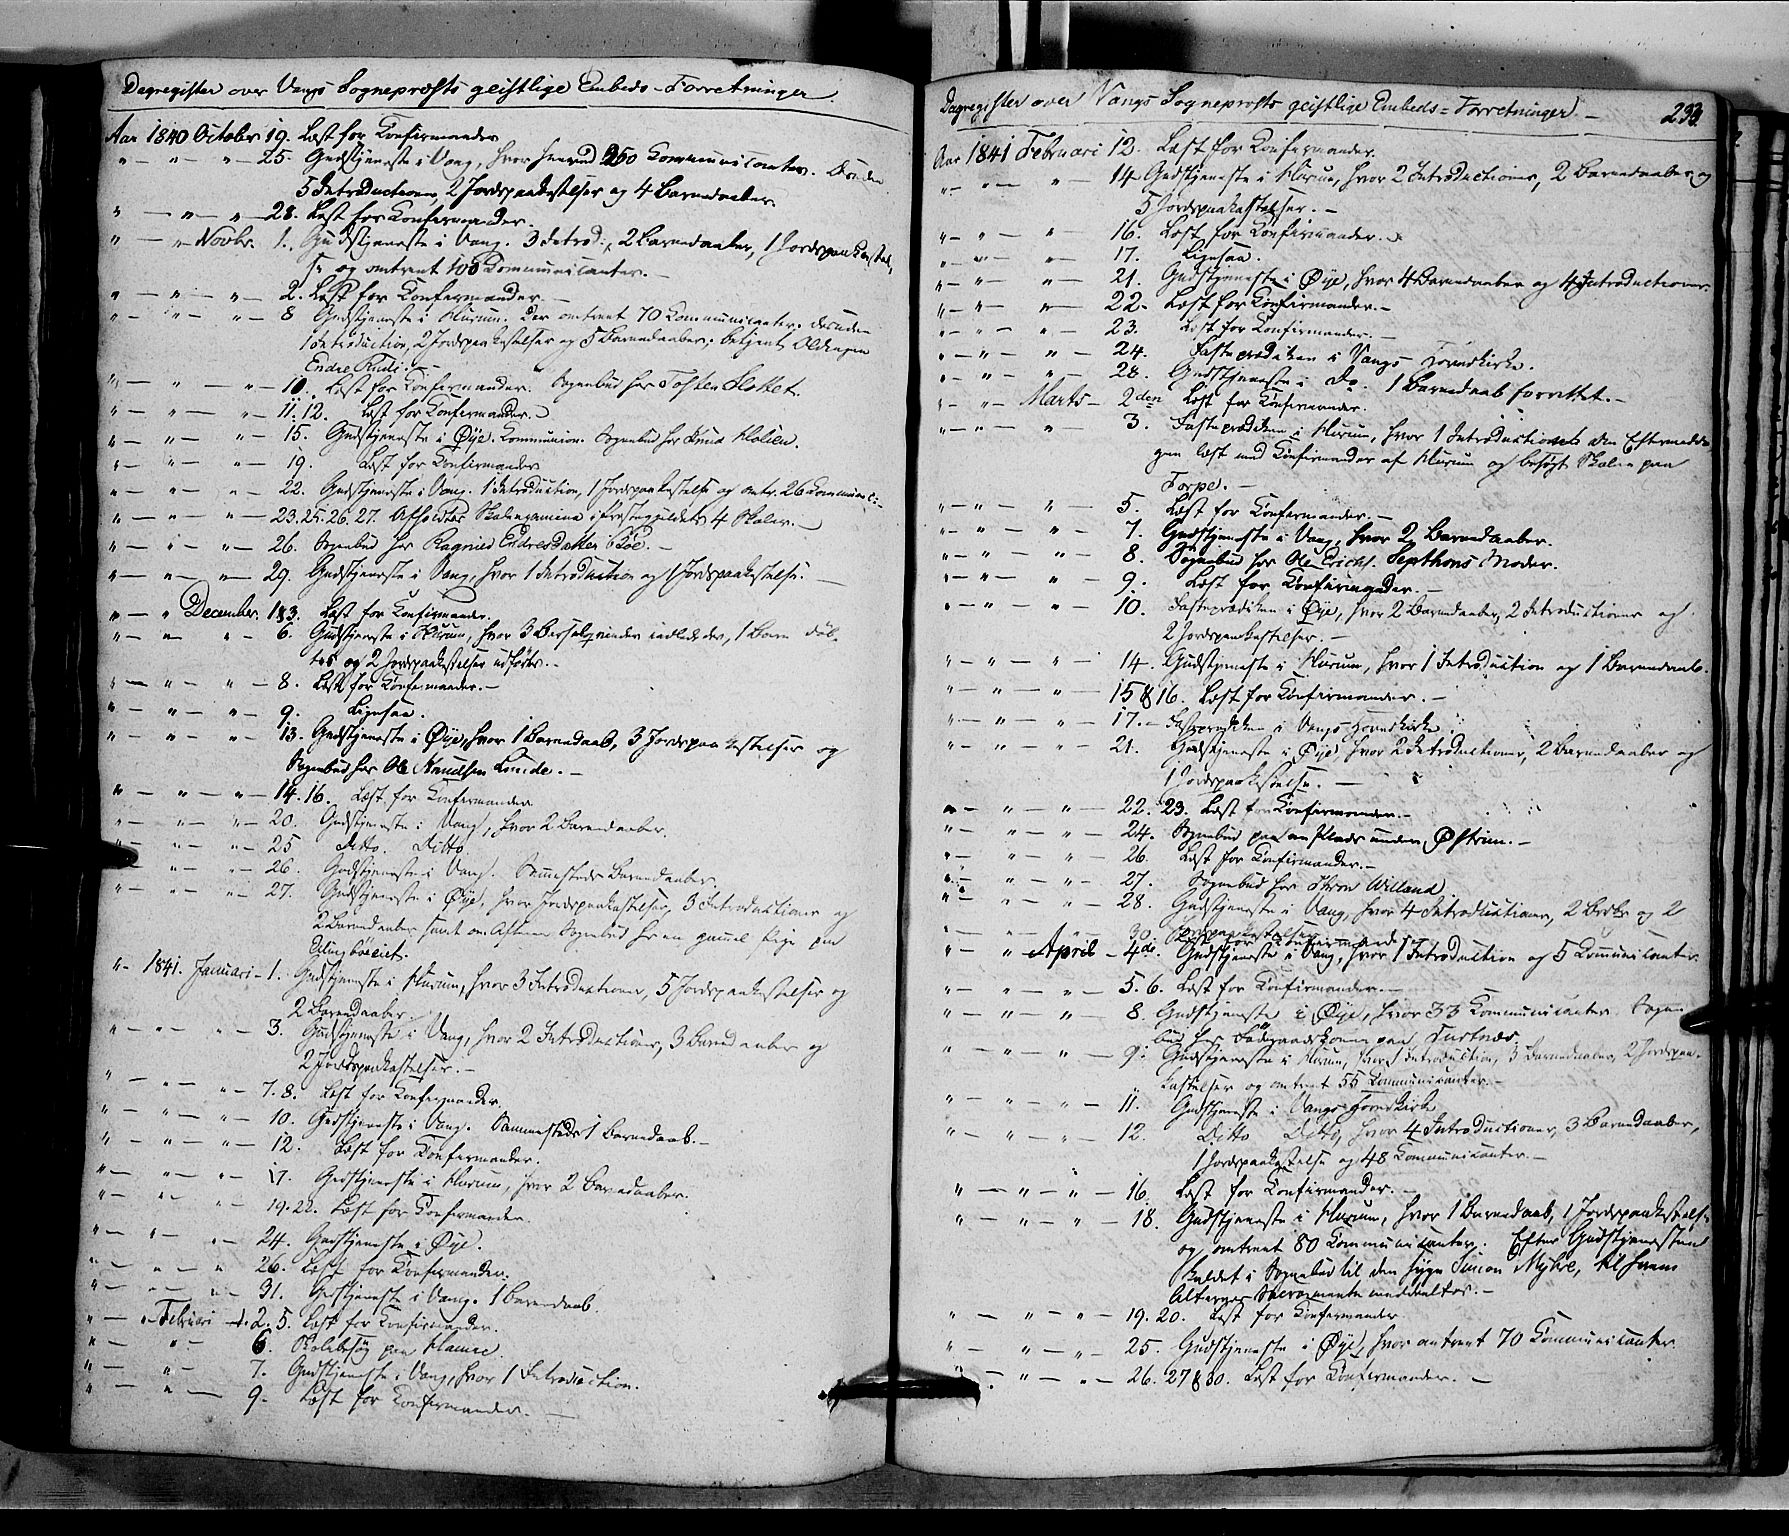 Dagregister over Vangs Sognepræsts geistlige Embeds-Forretninger.
Aar 1840 October 19. Læst for Confirmander
" — " — " — 25. Gudstjeneste i Vang, hvor henved 250 Communicanter. Desuden
5 Introductioner, 2 Jordpaakastelser og 4 Barnedaaber.
" — " — " — 28. Læst for Confirmander.
" — " Novbr. 1. Gudstjeneste i Vang. 3 Introd:, 2 Barnedaaber, 1 Jordpaakastel,
se og omtrent 100 Communicanter. —
" — " — " — 2. Læst for Confirmander. —
" — " — " — 8 Gudstjeneste i Hurum. Der omtrent 70 Communicanter. desuden
1 Introduction, 2 Jordpaakastelser og 5 Barnedaaber; betjent Oldingen
Endre Rudi. —
" — " — " — 10. Læst for Confirmander. Sognebud hos Tosten Slettet.
" — " — " — 11. 12. Læst for Confirmander.
" — " — " — 15. Gudstjeneste i Øye. Communion. Sognebud hos Knud Molien.
" — " — " — 19. Læst for Confirmander
" — " — " — 22. Gudstjeneste i Vang. 1 Introduction, 1 Jordpaakastelse og omtr. 26 Communic:
" — " — " — 23. 25. 26. 27. Afholdtes Skoleexamina i Præstegjeldets 4 Skoler. —
" — " — " — 26. Sognebud hos Ragnild Endresdatter Bøe. —
" — " — " — 29. Gudstjeneste i Vang, hvor 1 Introduction og 1 Jordpaakastelse. —
" — " December. 1 & 3. Læst for Confirmander.
" — " — " — 6. Gudstjeneste i Hurum, hvor 3 Barselqvinder indlededes, 1 Barn døb-
tes og 2 Jordpaakastelser udførtes. —
" — " — " — 8. Læst for Confirmander. —
" — " — " — 9. Ligesaa.
" — " — " — 13. Gudstjeneste i Øye, hvor 1 Barnedaab, 3 Jordpaakastelser og
Sognebud hos Ole Knudsen Lunde. —
" — " — " — 14. 16. Læst for Confirmander
" — " — " — 20. Gudstjeneste i Vang, hvor 2 Barnedaaber.
" — " — " — 25 Ditto. Ditto
" — " — " — 26. Gudstjeneste i Vang. Sammesteds Barnedaaber.
" — " — " — 27. Gudstjeneste i Øye, hvor Jordpaakastelser, 3 Introductioner og
2 Barnedaaber samt om Aftenen Sognebud hos en gammel Pige paa

" — 1841. Januari — 1. Gudstjeneste i Hurum, hvor 3 Introductioner, 5 Jordpaakastelser og
2 Barnedaaber.
" — " — " — 3. Gudstjeneste i Vang, hvor 2 Introductioner, 3 Barnedaaber og
2 Jordpaakastelser. —
" — " — " — 7. 8. Læst for Confirmander.
" — " — " — 10. Gudstjeneste i Vang. Sammesteds 1 Barnedaab. —
" — " — " — 12. Læst for Confirmander.
" — " — " — 17. Gudstjeneste i Hurum, hvor 2 Barnedaaber.
" — " — " — 19. 22. Læst for Confirmander.
" — " — " — 24. Gudstjeneste i Øye.
" — " — " — 26. Læst for Confirmander.
" — " — " — 31. Gudstjeneste i Vang. 1 Barnedaab.
" — " Februari — 1. 2. 5. Læst for Confirmander.
" — " — 6. Skolebesøg paa
" — " — 7. Gudstjeneste i Vang, hvor 1 Introduction.
" — " — 9. Læst for Confirmander. —
Dagregister over Vangs Sognepræsts geistlige Embeds-Forretninger — 233.
Aar 1841 Februari 12. Læst for Confirmander.
" — " — " — 14. Gudstjeneste i Hurum, hvor 2 Introductioner, 2 Barnedaaber og
5 Jordpaakastelser. —
" — " — " — 16. Læst for Confirmander. —
" — " — " — 17. Ligesaa.
" — " — " — 21. Gudstjeneste i Øye, hvor 4 Barnedaaber og 4 Introductioner
" — " — " — 22. Læst for Confirmander. —
" — " — " — 23. Læst for Confirmander. —
" — " — " — 24. Fasteprædiken i Vangs Hovedkirke.
" — " — " — 28. Gudstjeneste i Do. 1 Barnedaab forrettet. —
" — " — Marts — 2den Læst for Confirmander.
" — " — " — 3. Fasteprædiken i Hurum, hvor 1 Introduction. Om Eftermidda-
gen læst med Confirmander af Hurum og besøgt Skolen paa
Torpe. —
" — " — " — 5. Læst for Confirmander. —
" — " — " — 7. Gudstjeneste i Vang, hvor 2 Barnedaaber.
" — " — " — 8. Sognebud hos Ole Erichs. Moder.
" — " — " — 9. Læst for Confirmander. —
" — " — " — 10. Fasteprædiken i Øye, hvor 2 Barnedaaber, 2 Introductioner og
2 Jordpaakastelser. —
" — " — " — 14. Gudstjeneste i Hurum, hvor 1 Introduction og 1 Barnedaab.
" — " — " — 15 & 16. Læst for Confirmander. —
" — " — " — 17. — Fasteprædiken i Vangs Hovedkirke.
" — " — " — 21. Gudstjeneste i Øye, hvor 2 Introductioner, 2 Barnedaaber og
1 Jordpaakastelse. —
" — " — " — 22. 23. Læst for Confirmander. —
" — " — " — 24. Sognebud paa en Plads under Øfstrim. —
" — " — " — 26. Læst for Confirmander. —
" — " — " — 27. Sognebud hos Thron Willand.
" — " — " — 28. Gudstjeneste i Vang, hvor 4 Introductioner, 2 og 2
Jordpaakastelser
" — " — " — 30. Læst for Confirmander.
" — " — April — 4de. Gudstjeneste i Vang, hvor 1 Introduction og 5 Communicanter.
" — " — " — 5. 6. Læst for Confirmander. —
" — " — " — 8. Gudstjeneste i Øye, hvor 33 Communicanter. Sogne-
bud hos paa
" — " — " — 9. Gudstjeneste i Hurum, hvor 1 Introduction, 3 Barnedaaber, 2 Jordpaa-
kastelser og omtrent 55 Communicanter. —
" — " — " — 11. Gudstjeneste i Vangs Hovedkirke
" — " — " — 12. Ditto Ditto, hvor 4 Introductioner, 3 Barnedaaber,
1 Jordpaakastelse og 48 Communicanter. —
" — " — " — 16. Læst for Confirmander. —
" — " — " — 18. Gudstjeneste i Hurum, hvor 1 Barnedaab, 1 Jordpaakastelse
og omtrent 80 Communicanter. Efter Gudstjenesten
kaldet i Sognebud til den syge Simon Myhre, til hvem
Alterets Sacramente meddeeltes. —
" — " — " — 19. 20. Læst for Confirmander
" — " — " — 25. Gudstjeneste i Øye, hvor omtrent 70 Communicanter.
" — " — " — 26. 27 & 30. Læst for Confirmander. —